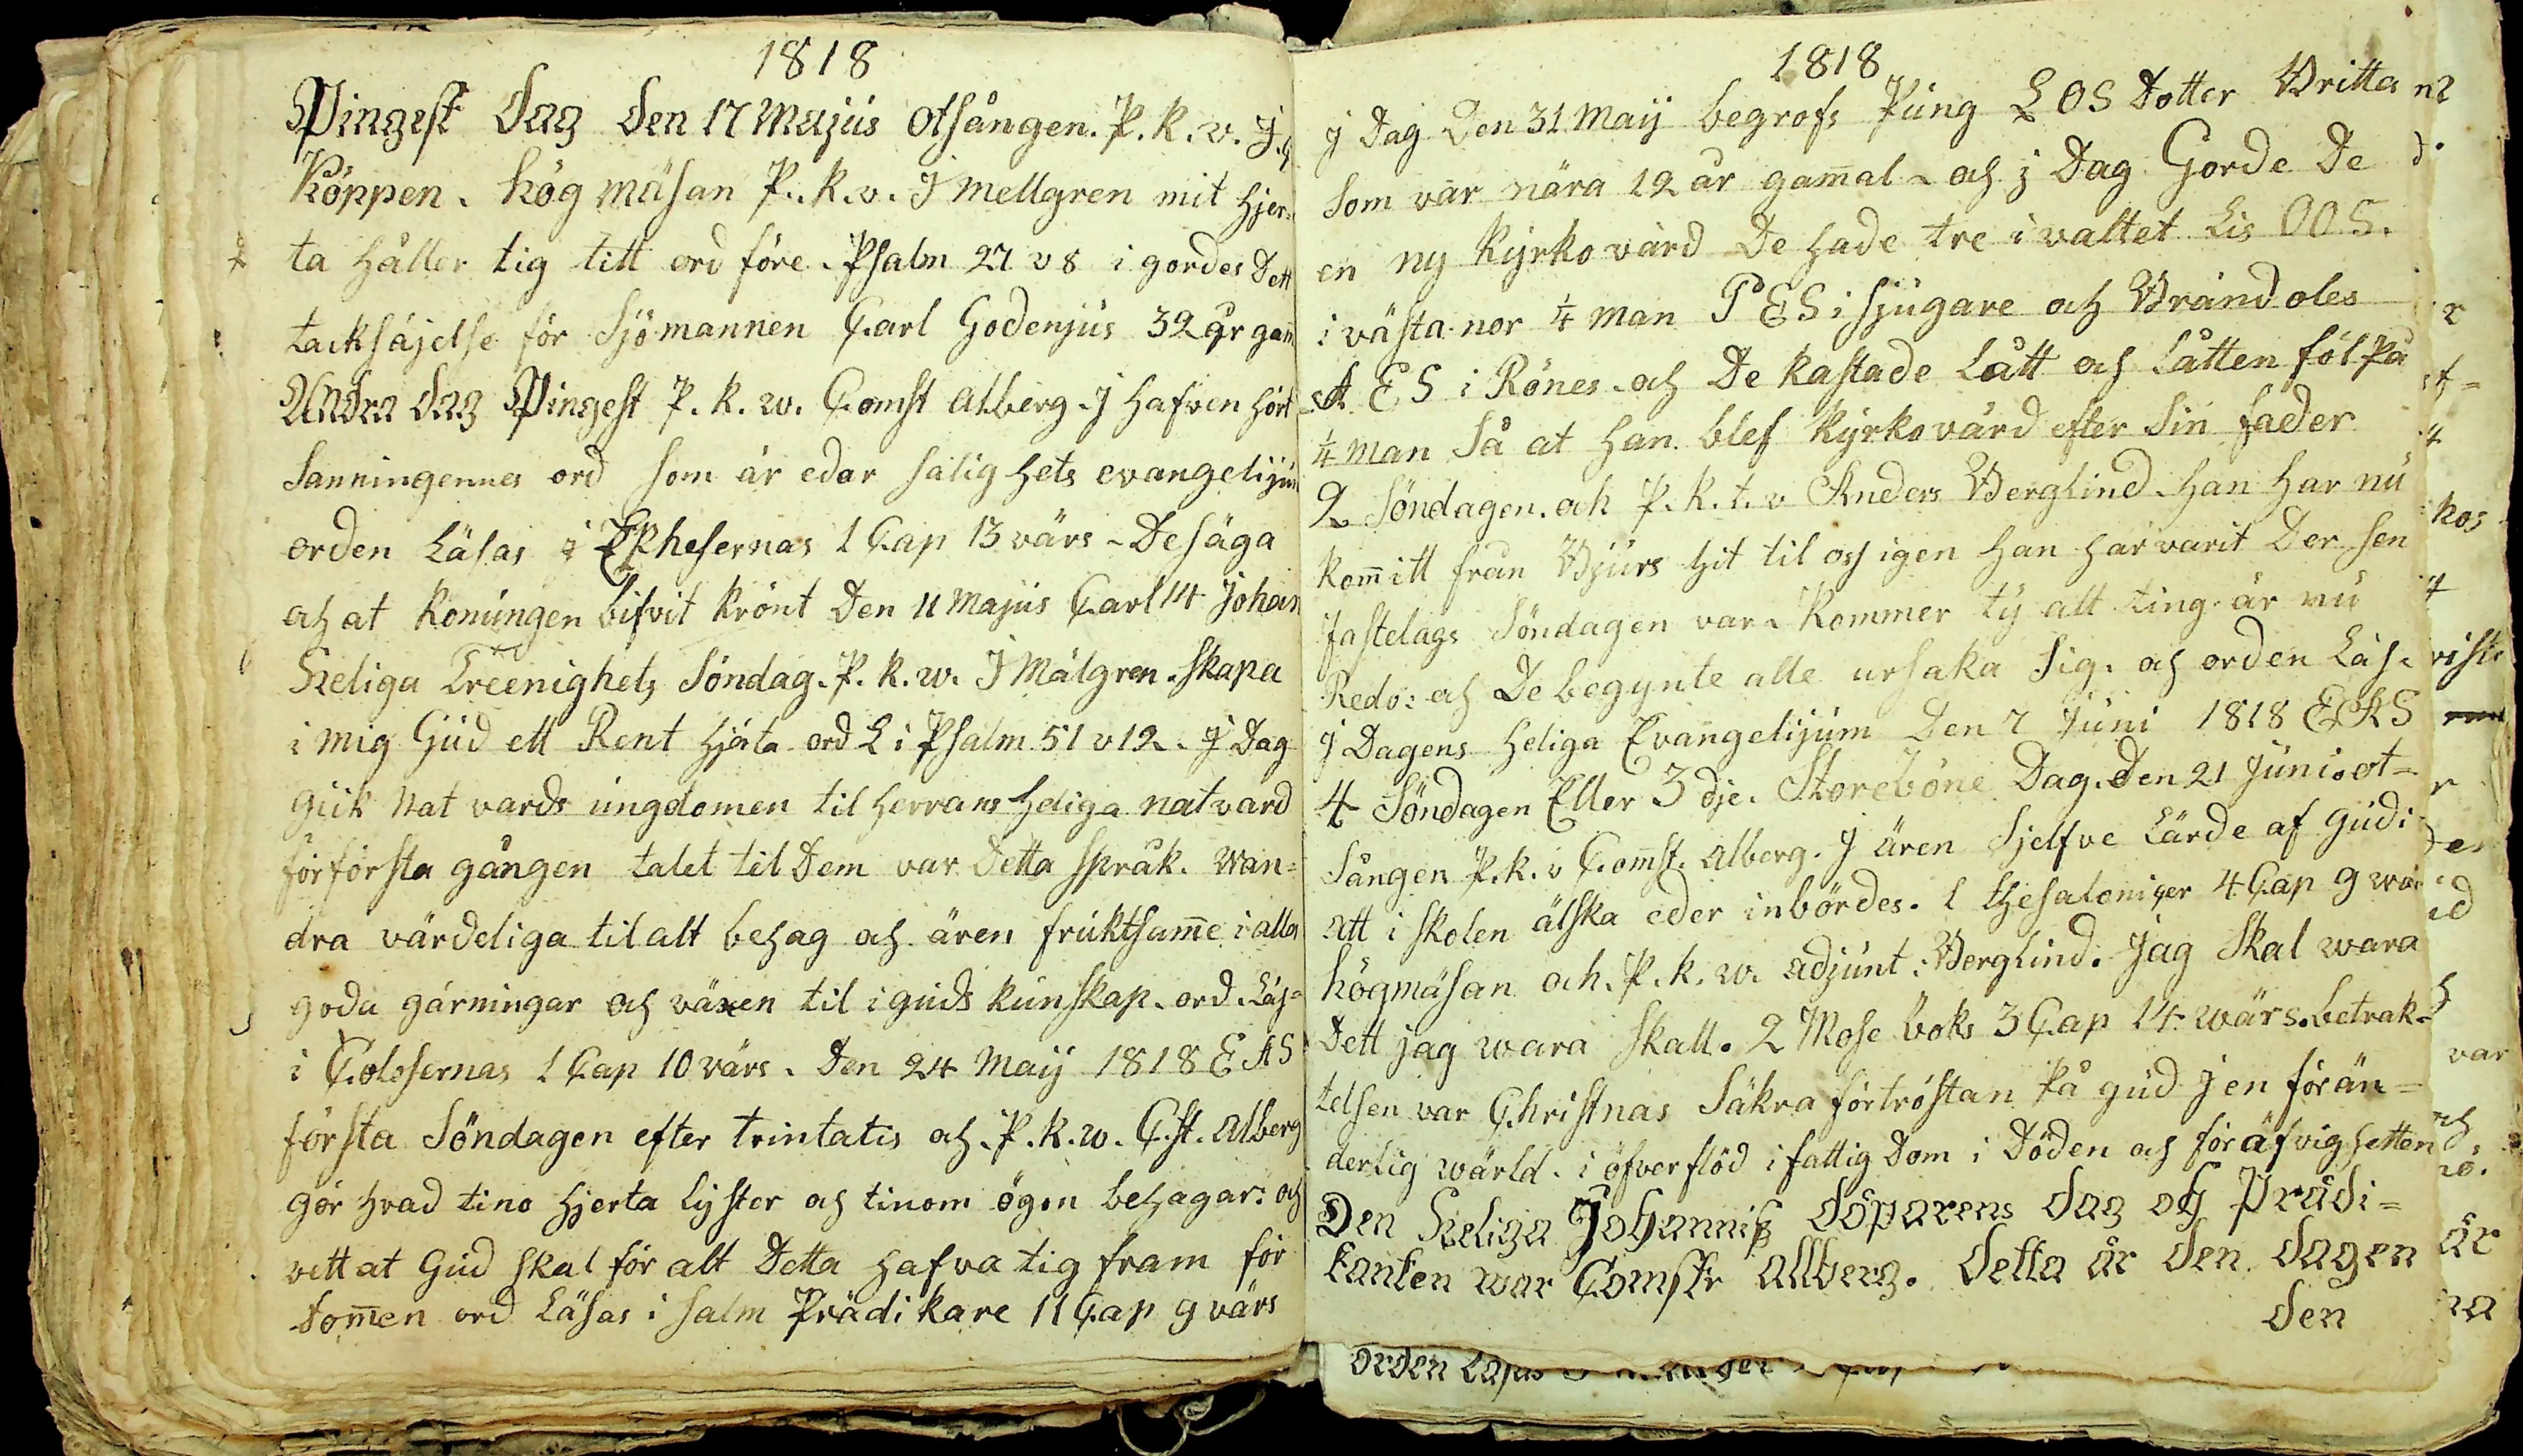 1818
Pingest Dag Den 17 Majus otsången. P. K. v. J.
Köppen. hög mäsan P. K. v. J Mellgren mit hjer=
ta håller tig titt ord före. Psalm 27 v 8 i gordes Dett
tacksäjelse för Sjömannen Carl Godenjus 32 år gam
Andra Dag Pingest P. K. w. Comst Alberg. J hafven hört
Sanningennes ord som är edar salighets evangelijum
orden Läsas i Ephesernas 1 Cap 13 värs. De säga
och at konungen blifvit krönt Den 11 Majus Carl 14 Johan
Heliga Treenighets Söndag. P. K. w. J Mälgren. skapa
i mig Gud ett Rent hjärta ord L i Psalm 51 v 12. J Dag
gick Natvards ungdomen til Herrans heliga natvard
för första gången talet til Dem var Detta språk. Wan=
dra värdeliga til alt behag och ären fruktsamme i alla
goda gärningar och växen til i guds kunskap. ord. Läs=
i Colosernas 1 Cap 10 värs. Den 24 Maij 1818 EAS
första Söndagen efter trintatis och. P. K. w. C.st. Alberg
gör hvad tino hjerta lyster och tinom ögon behagar: och
vett at Gud skal för alt Detta hafva tig fram för
tommen ord Läsas i salm Prädikare 11 Cap 9 värs
1818
J Dag Den 31 Maij begrofs Pung LOS Dotter Britta
Som var nära 12 år gammal. och j Dag Gorde De
en ny Kyrkovärd De hade tre i valtet Lis OOS.
i västa nor 1/4 man PES i Sjugare och Bränd oles
AES i Rönes. och De kastade Lått och Låtten föl På
1/4 man Så at han blef Kyrkovärd efter Sin fader
2 Söndagen. och P. K. t. v Anders Berglind. han har nu
kommitt från Bjurs hit til oss igen han har varit Der sen
fastelags Söndagen var. Kommer ty alt ting är nu
Redo: och De begynte alle ursaka Sig. och orden Läs.
J Dagens heliga Evangelijum Den 7 Juni 1818 EAS
4 Söndagen Eller 3 dje. Storeböne Dag. Den 21 Juni. ot=
Sången P. K. v Comst. Alberg. J ären Sjelfve Lärde af Gudi
Att i skolen älska eder inbördes. 1 thesaloniger 4 Cap 9 wär
högmäsan och. P. K. w. Adjunt. Berglind. Jag Skal wara
Dett jag wara Skall. 2 Mose boks 3 Cap 14 wärs. betrak=
telsen var Christnas Säkra förtröstan På gud J en förän=
derlig wärld. i öfverflöd i fattig Dom i Döden och för äfvighetten
Den Heliga Johanniss döparens dag och Prädi=
kanten war Comstr Allberg. Detta är den dagen
den
orden Läsas